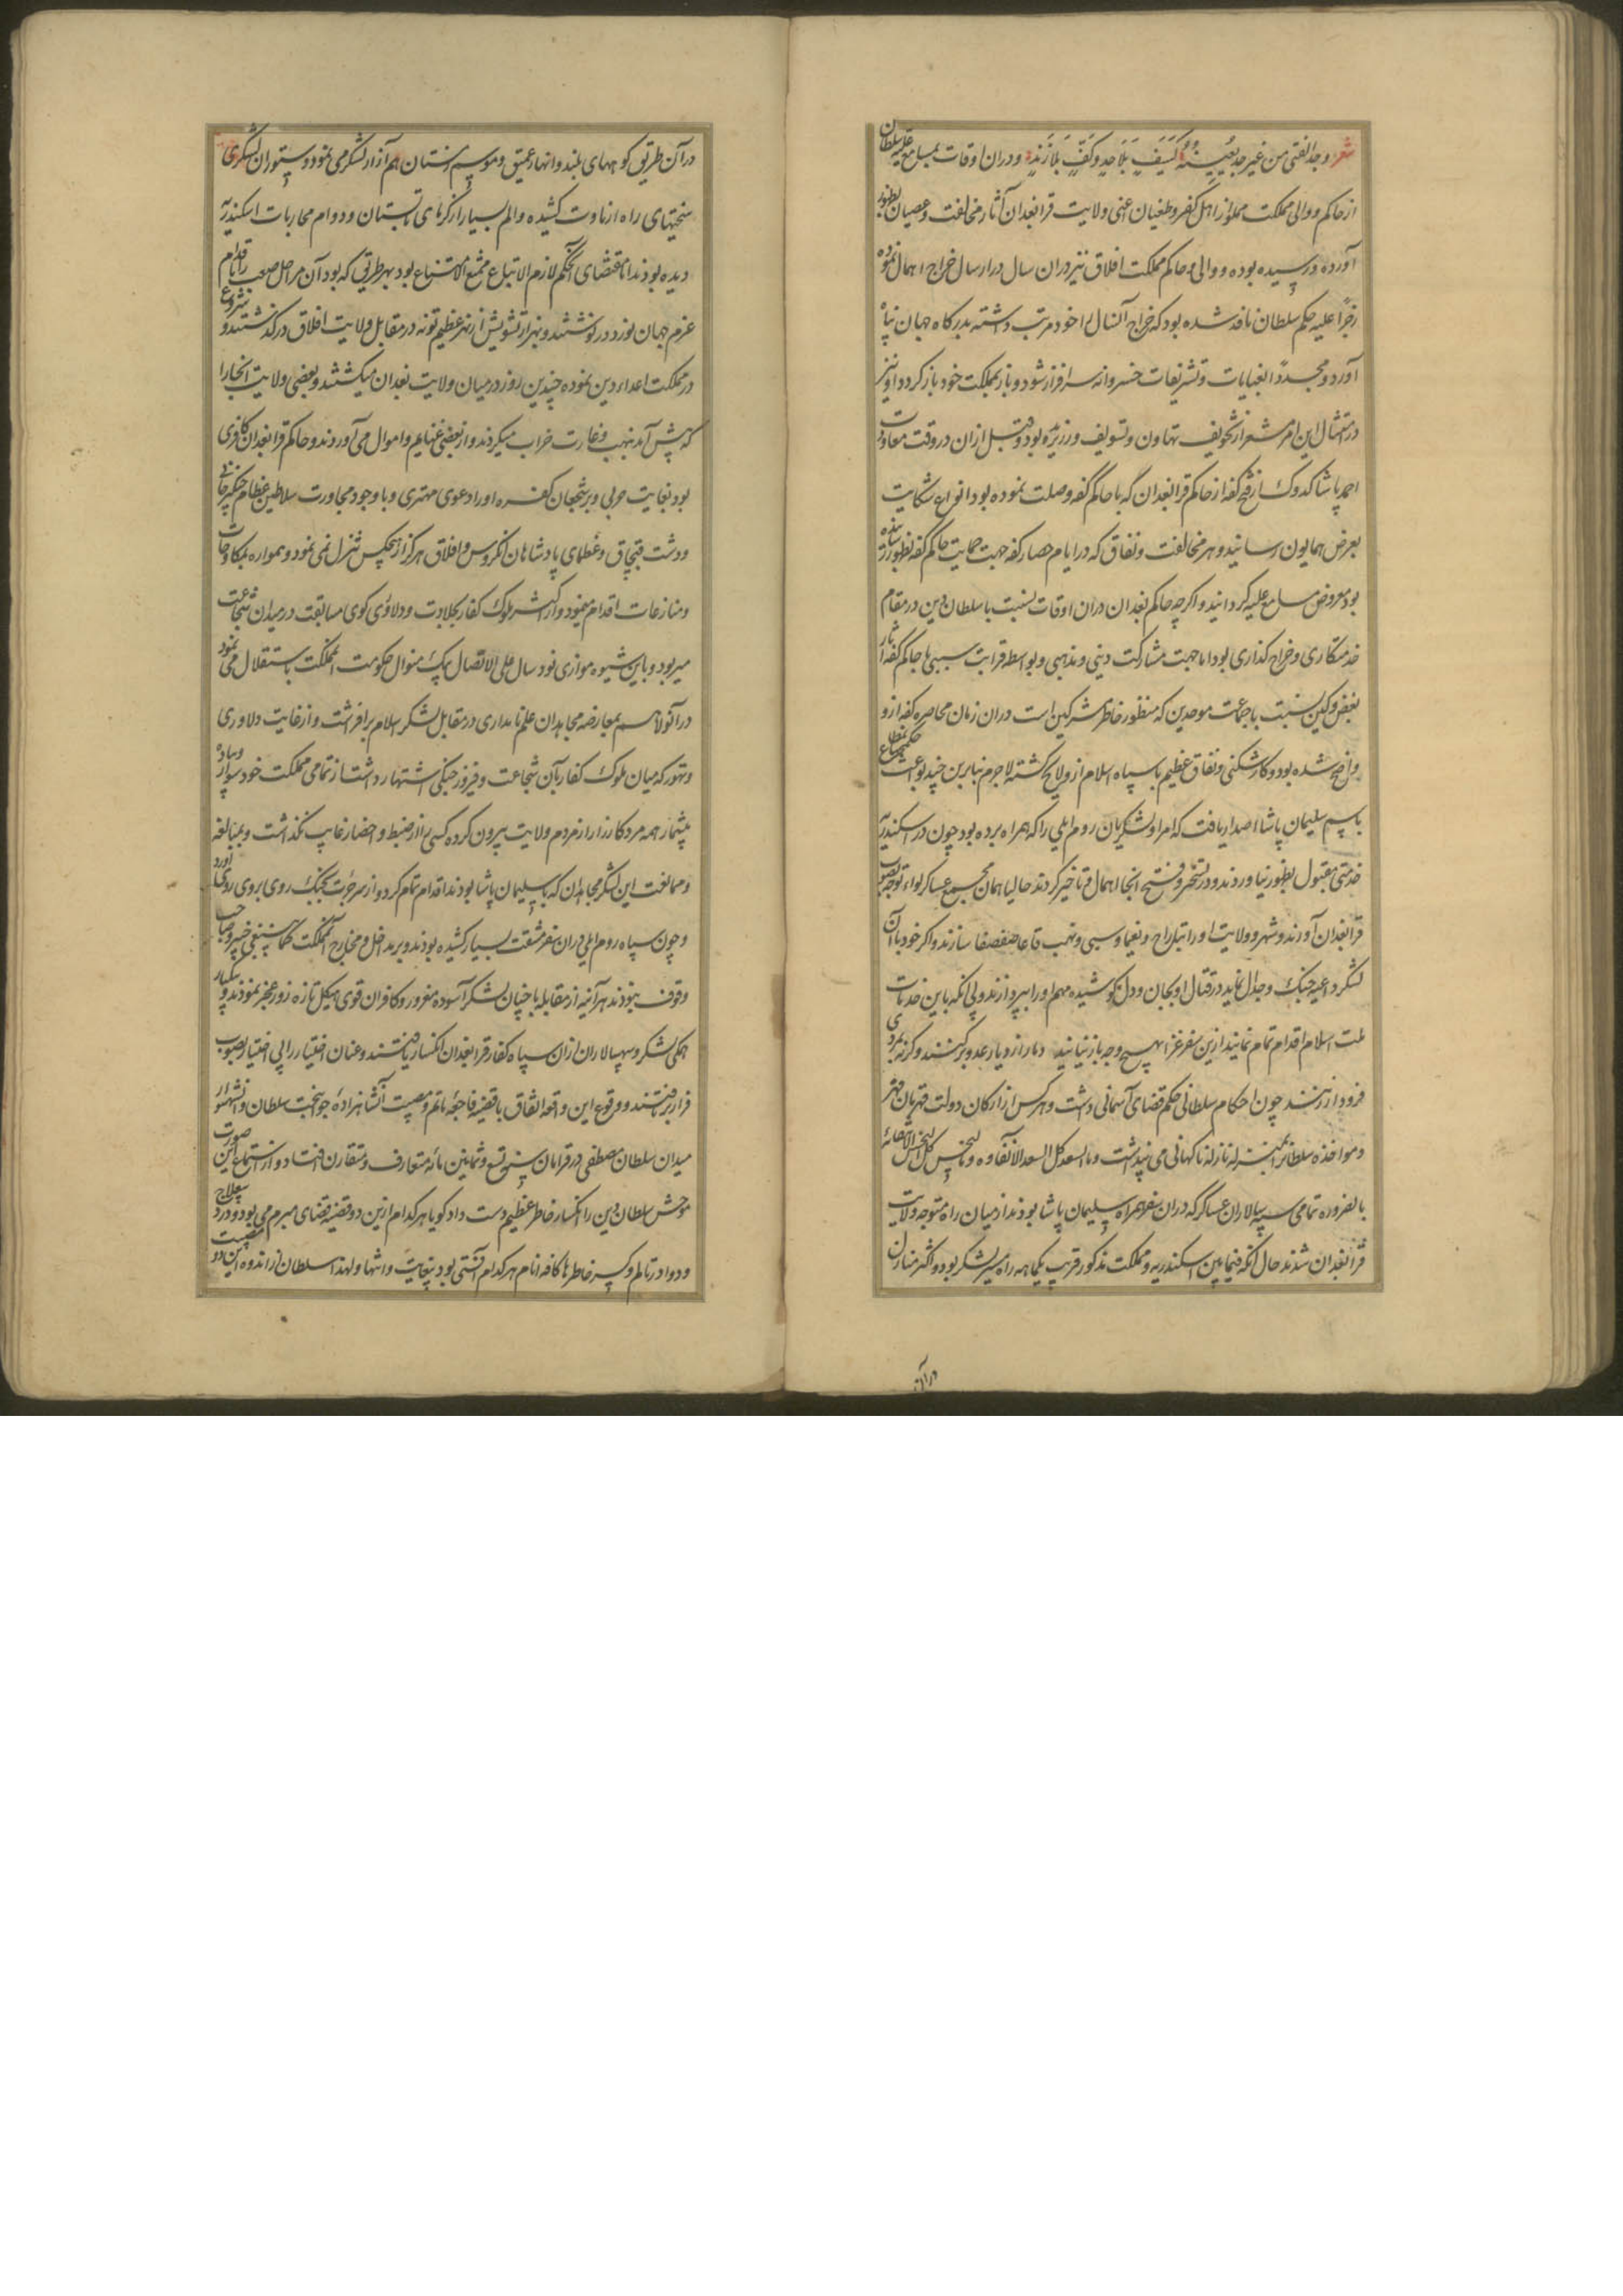 شعر وجد الفتی من غیر جد یعینه کسیف بلا حد وکف بلا زند ودران اوقات بمسامع علیه سلطان
از حاکم ووالی مملکت مملو از اهل کفر وطغیان اعنی ولایت قرابغدان آثار مخالفت وعصیان بظهور
آورده ورسیده بوده ووالی وحاکم مملکت افلاق نیز دران سال در ارسال خراج اهمال نموده
زجرا علیه حکم سلطان نافذ شده بود که خراج آنسال را خود مرتب داشته بدرکاه جهان پناه
آورد ومجددا بعنایات وتشریفات خسروانه سرافراز شود وباز بمملکت خود باز کردد او نیز
در امتثال این امر مشعر از تخویف تهاون وتسویف ورزیده بود وقبل ازان در وقت معاودت
احمد پاشا کدوک از فتح کفه از حاکم قرابغدان که با حاکم کفه وصلت نموده بود انواع شکایت
بعرض همایون رسانید وهر مخالفت ونفاق که در ایام حصار کفه جهت حمایت حاکم کفه بظهور رسانیده
بود معروض مسامع علیه کردانید واکرچه حاکم بغدان دران اوقات نسبت با سلطان دین در مقام
خدمتکاری وخراج کذاری بود اما جهت مشارکت دینی ومذهبی وبواسطه قرابت سببی با حاکم کفه آثار
بغض وکین نسبت با جماعت موحدین که منظور خاطر مشرکین است دران زمان محاصره کفه ازو
واضح شده بود وکارشکنی ونفاق عظیم با سپاه اسلام ازو لایح کشته لاجرم بنابرین چند بواعث حکم مطاع
باسم سلیمان پاشا اصدار یافت که امرا ولشکریان روم ایلی را که همراه برده بود چون در اسکندریه
خدمتی مقبول بظهور نیاوردند ودر تسخیر وفتح انجا اهمال وتاخیر کردند حالیا همان مجموع عساکر لواء توجه بصوب
قرابغدان آورند وشهر وولایت او را بتاراج ویغما وسبی ونهب قاعا صفصفا سازند واکر خود با آن
لشکر داعیه جنک وجدال نماید در قتال او بجان ودل کوشیده مهم او را بپردازند ولی آنکه باین خدمات
ملت اسلام اقدام تمام نمایند ازین سفر غزا بهیچ وجه باز نیایند دمار از دیار عدو برکنند وکرنه
فرود ازند چون احکام سلطانی حکم قضای آسمانی داشت وهرکس از ارکان دولت قهرمان قهر
ومواخذه سلطانرا بمنزله نازله ناکهانی می پنداشت وما السعد کل السعد الا لقاوه وما النحس کل النحس الا لقائه
بالضروره تمامی سپهسالاران عساکر که دران سفر همراه سلیمان پاشا بودند از میان راه متوجه ولایت
قرابغدان شدند حال آنکه فیما بین اسکندریه ومملکت مذکور قریب یکماهه راه مسیر لشکر بود واکثر منازل
در آن
در آن طریق کوههای بلند وانهار عمیق وموسم زمستان هم آزار لشکر می نمود وستوران لشکری
سختیهای راه ارناوت کشیده والم بسیار از کرمای تابستان ودوام محاربات اسکندریه
دیده بودند اما بمقتضای آنحکم لازم الاتباع ممتنع الامتناع بود بهر طریق که بود آن مراحل صعب را باقدام
عزم جهان نورد درنوشتند وبهزار تشویش از نهر عظیم تونه در مقابل ولایت افلاق درکذشتند وشروع
در مملکت اعداء دین نموده چندین روز در میان ولایت بغدان میکشتند وبعضی ولایت انجا را
که پیش آمد بنهب وغارت خراب میکردند واز بعضی غنایم واموال می آوردند وحاکم قرابغدان کافری
بود بغایت حربی وبر شجعان کفره او را دعوی مهتری وبا وجود مجاورت سلاطین عظام چنکیزخانی
ودشت قبچاق وعظمای پادشاهان انکروس وافلاق هرکز از هیچکس تنزل نمی نمود وهمواره بمکاوحات
ومنازعات اقدام مینمود واز اکثر ملوک کفار بجلادت ودلاوری کوی مسابقت در میدان شجاعت
میربود وباین شیوه موازی نود سال علی الاتصال بیک منوال حکومت آنمملکت باستقلال می نمود
در آنولا هم بمعارضه مجاهدان علم نامداری در مقابل لشکر اسلام برافراشت واز غایت دلاوری
وتهور که میان ملوک کفار بآن شجاعت وفیروز جنکی اشتهار داشت از تمامی مملکت خود سوار وپیاده
بیشمار همه مرد کارزار از مردم ولایت بیرون کرده کسی را از ضبط واحضار غایب نکذاشت وبمبالغه
وممانعت این لشکر مجاهدان که با سلیمان پاشا بودند اقدام تمام کرد واز سر جرات بجنک روی بروی روی آورد
وچون سپاه روم ایلی دران سفر مشقت بسیار کشیده بودند وبر مداخل ومخارج آنمملکت کما ینبغی خبیر وصاحب
وقوف نبودند هرآینه از مقابله با چنان لشکر آسوده مغرور وکافران قوی هیکل تازه زور عجز نمودند وبیکبار
همکی لشکر وسپهسالاران ازان سپاه کفار قرابغدان انکسار یافتند وعنان اختیار را بی اختیار بصوب
فرار برتافتند ووقوع این واقعه اتفاق با قضیه فاجعه ماتم ومصیبت آنشاهزاده جوانبخت سلطان وآنشهسوار
میدان سلطان مصطفی در قرامان سنه تسع وثمانین مائه متعارف ومتقارن افتاد واز استماع این صورت
موحش سلطان دین را انکسار خاطر عظیم دست داد کویا هرکدام ازین دو قضیه قضای مبرم می بود ودرد بیعلاج
ودوا در تالم وکسر خاطرها کافه انام هرکدام آفتی بود بیغایت وانتها ولهذا سلطان از اندوه این دو مصیبت